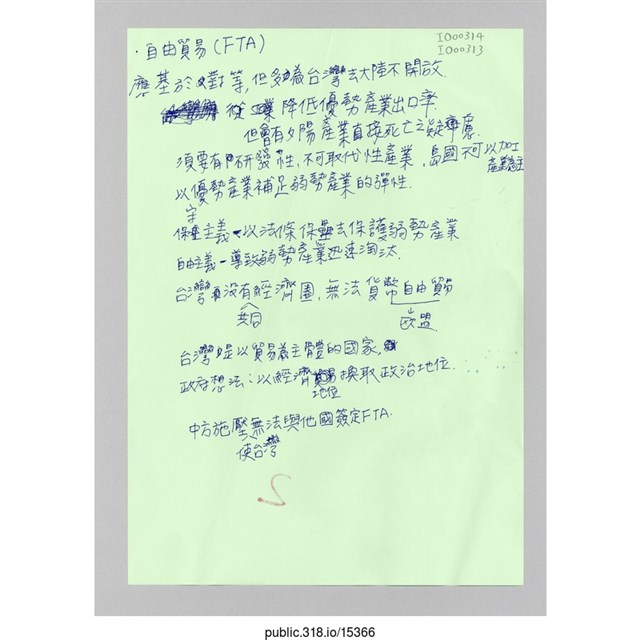 I000314
I000313
·自由貿易(FTA)
應基於對等,但多為台灣去大陸不開放.
從 降低優勢產業出口率.
但會有夕陽產業直接死亡之疑慮.
須要有研發性,不可取代性產業,島國不可以加工產業為主
以優勢產業補足弱勢產業的彈性.
守
保壘主義-以法條保壘去保護弱勢產業
自由主義-導致弱勢產業迅速淘汰.
台灣沒有經濟圈,無法貨幣自由貿易
共同 歐盟
台灣是以貿易為主體的國家,
政府想法:以經濟換取政治地位.
地位
中方施壓無法與他國簽定FTA.
使台灣
public.318.io/15366